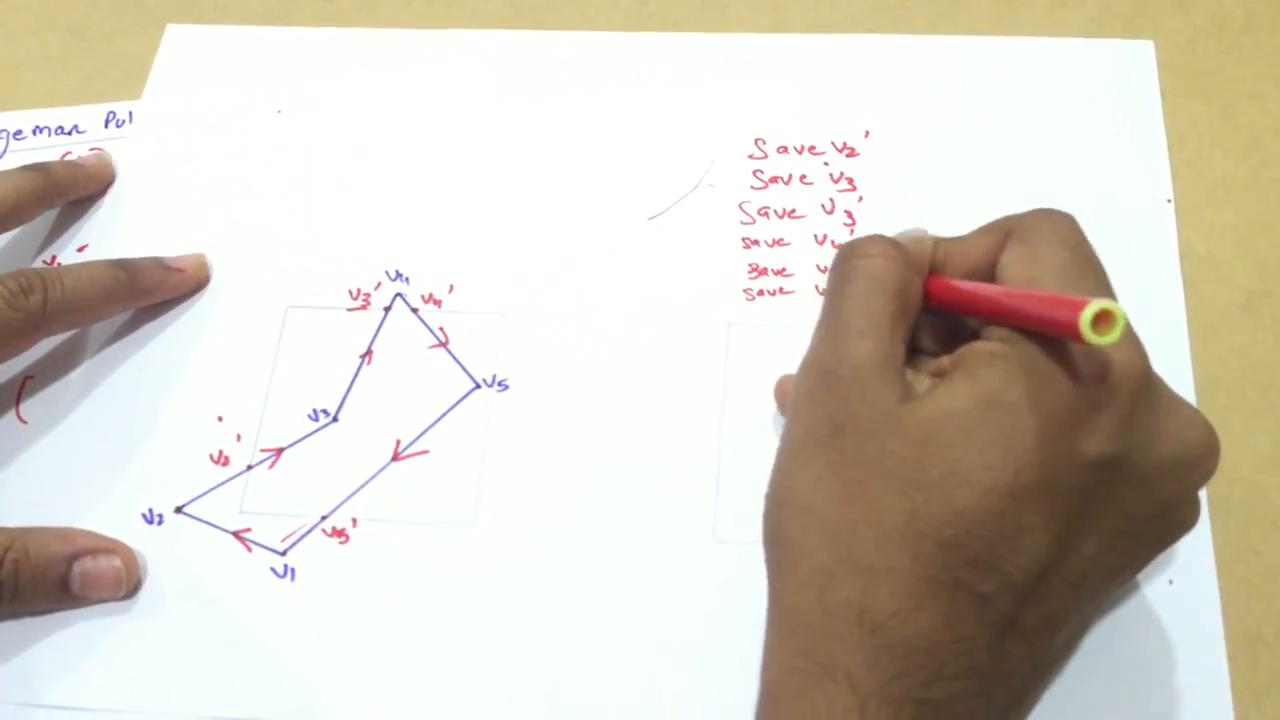 geman Pol
Save v2'
Save v3
Save v3'
save v4'
save v
save
v4
v3'
v4'
v5
v3
v2'
v2
v5'
v1